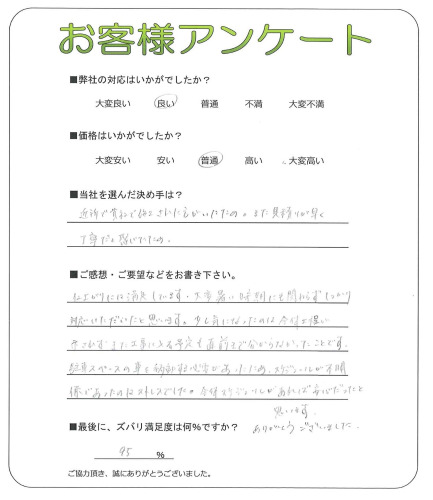 お客様アンケート
■弊社の対応はいかがでしたか?
大変良い 良い 普通 不満 大変不満
■価格はいかがでしたか?
大変安い 安い 普通 高い 大変高い
■当社を選んだ決め手は?
近所で貴社で施工された方がいたため。また見積りが早く
丁寧だと感じたため。
■ご感想・ご要望などをお書き下さい。
仕上がりには満足しています。大変暑い時期にも関わらずしっかり
対応いただいたと思います。少し気になったのは
また工事に入る予定も直前まで分からなかったことです。
駐車スペースの車を移動する必要があったため、スケジュールが不明
確であったのはストレスでした。スケジュールがあれば安心だったと
思います。
ありがとうございました。
■最後に、ズバリ満足度は何%ですか?
95 %
ご協力頂き、誠にありがとうございました。